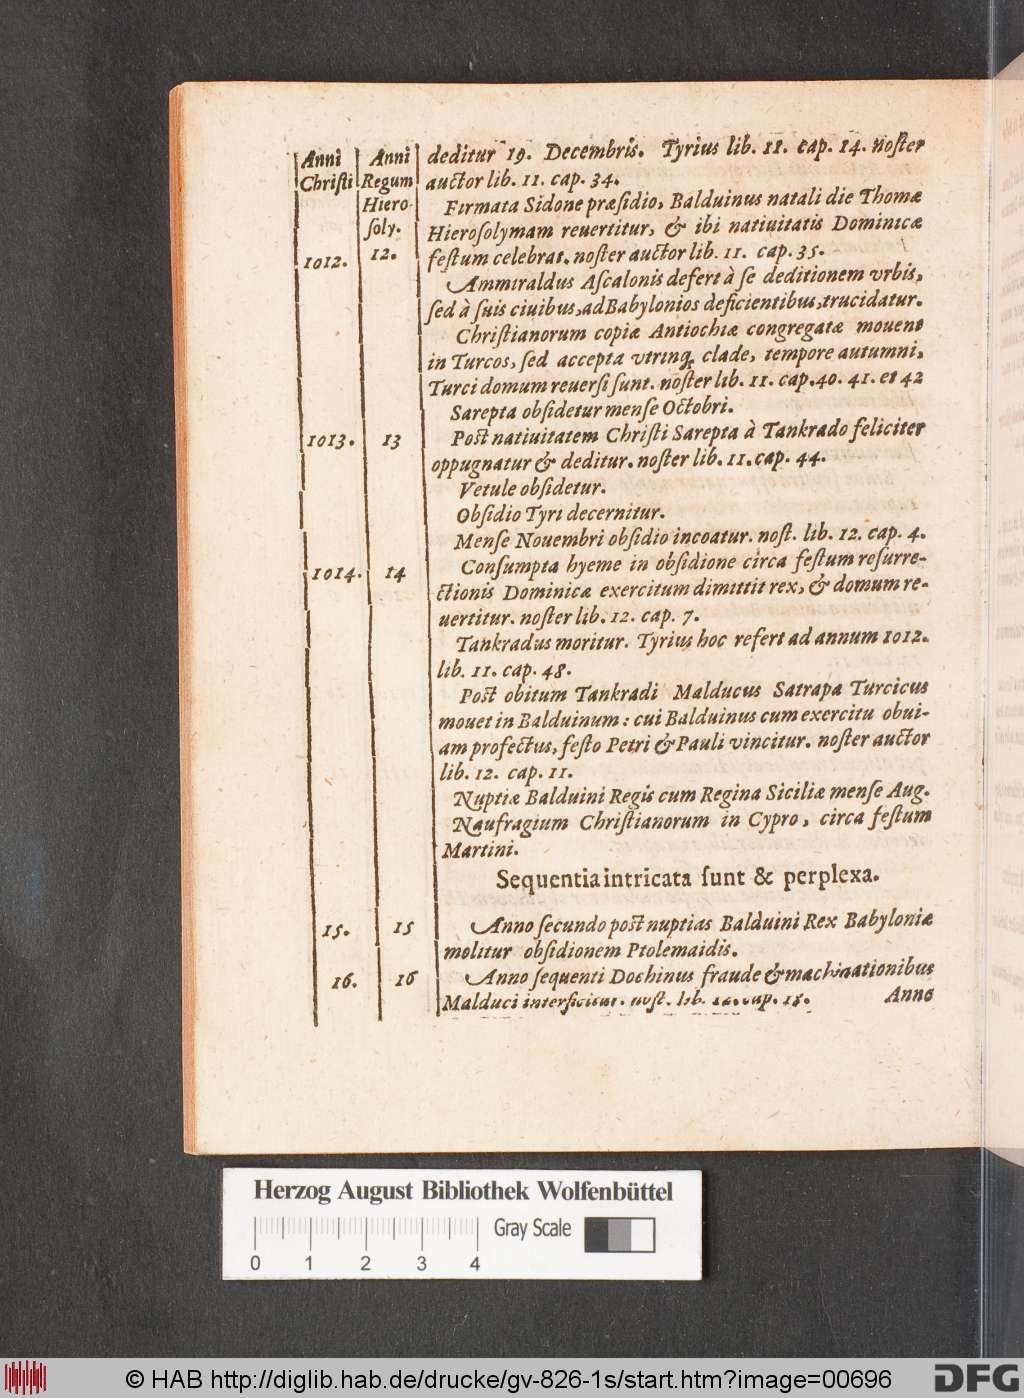 Anni Anni deditur 19. Decembris. Tyrius lib. 11. cap. 14. noſter
Chriſti Regum auctor lib. 11. cap. 34.
Hiero- Firmata Sidone præſidio, Balduinus natali die Thomæ
ſoly. Hieroſolymam reuertitur, & ibi natiuitatis Dominicæ
1012. 12. feſtum celebrat. noſter auctor lib. 11. cap. 35.
Ammiraldus Aſcalonis defert à ſe deditionem vrbis,
ſed à ſuis ciuibus, ad Babylonios deficientibus, trucidatur.
Chriſtianorum copiæ Antiochiæ congregatæ mouent
in Turcos, ſed accepta vtrinq; clade, tempore autumni,
Turci domum reuerſi ſunt. noſter lib. 11. cap. 40. 41. et 42
Sarepta obſidetur menſe Octobri.
1013. 13 Post natiuitatem Chriſti Sarepta à Tankrado feliciter
oppugnatur & deditur. noſter lib. 11. cap. 44.
Vetule obſidetur.
Obſidio Tyri decernitur.
Menſe Nouembri obſidio incoatur. noſt. lib. 12. cap. 4.
1014. 14 Conſumpta hyeme in obſidione circa feſtum reſurre-
ctionis Dominicæ exercitum dimittit rex, & domum re-
uertitur. noſter lib. 12. cap. 7.
Tankradus moritur. Tyrius hoc refert ad annum 1012.
lib. 11. cap. 48.
Post obitum Tankradi Malducus Satrapa Turcicus
mouet in Balduinum: cui Balduinus cum exercitu obui-
am profectus, feſto Petri & Pauli vincitur. noſter auctor
lib. 12. cap. 11.
Nuptiæ Balduini Regis cum Regina Siciliæ menſe Aug.
Naufragium Chriſtianorum in Cypro, circa feſtum
Martini.
Sequentia intricata ſunt & perplexa.
15. 15 Anno ſecundo post nuptias Balduini Rex Babyloniæ
molitur obſidionem Ptolemaidis.
16. 16 Anno ſequenti Dochinus fraude & machinationibus
Malduci interficitur. noſt. lib. cap. Anno
Herzog August Bibliothek Wolfenbüttel
Gray Scale
0 1 2 3 4
© HAB http://diglib.hab.de/drucke/gv-826-1s/start.htm?image=00696
DFG